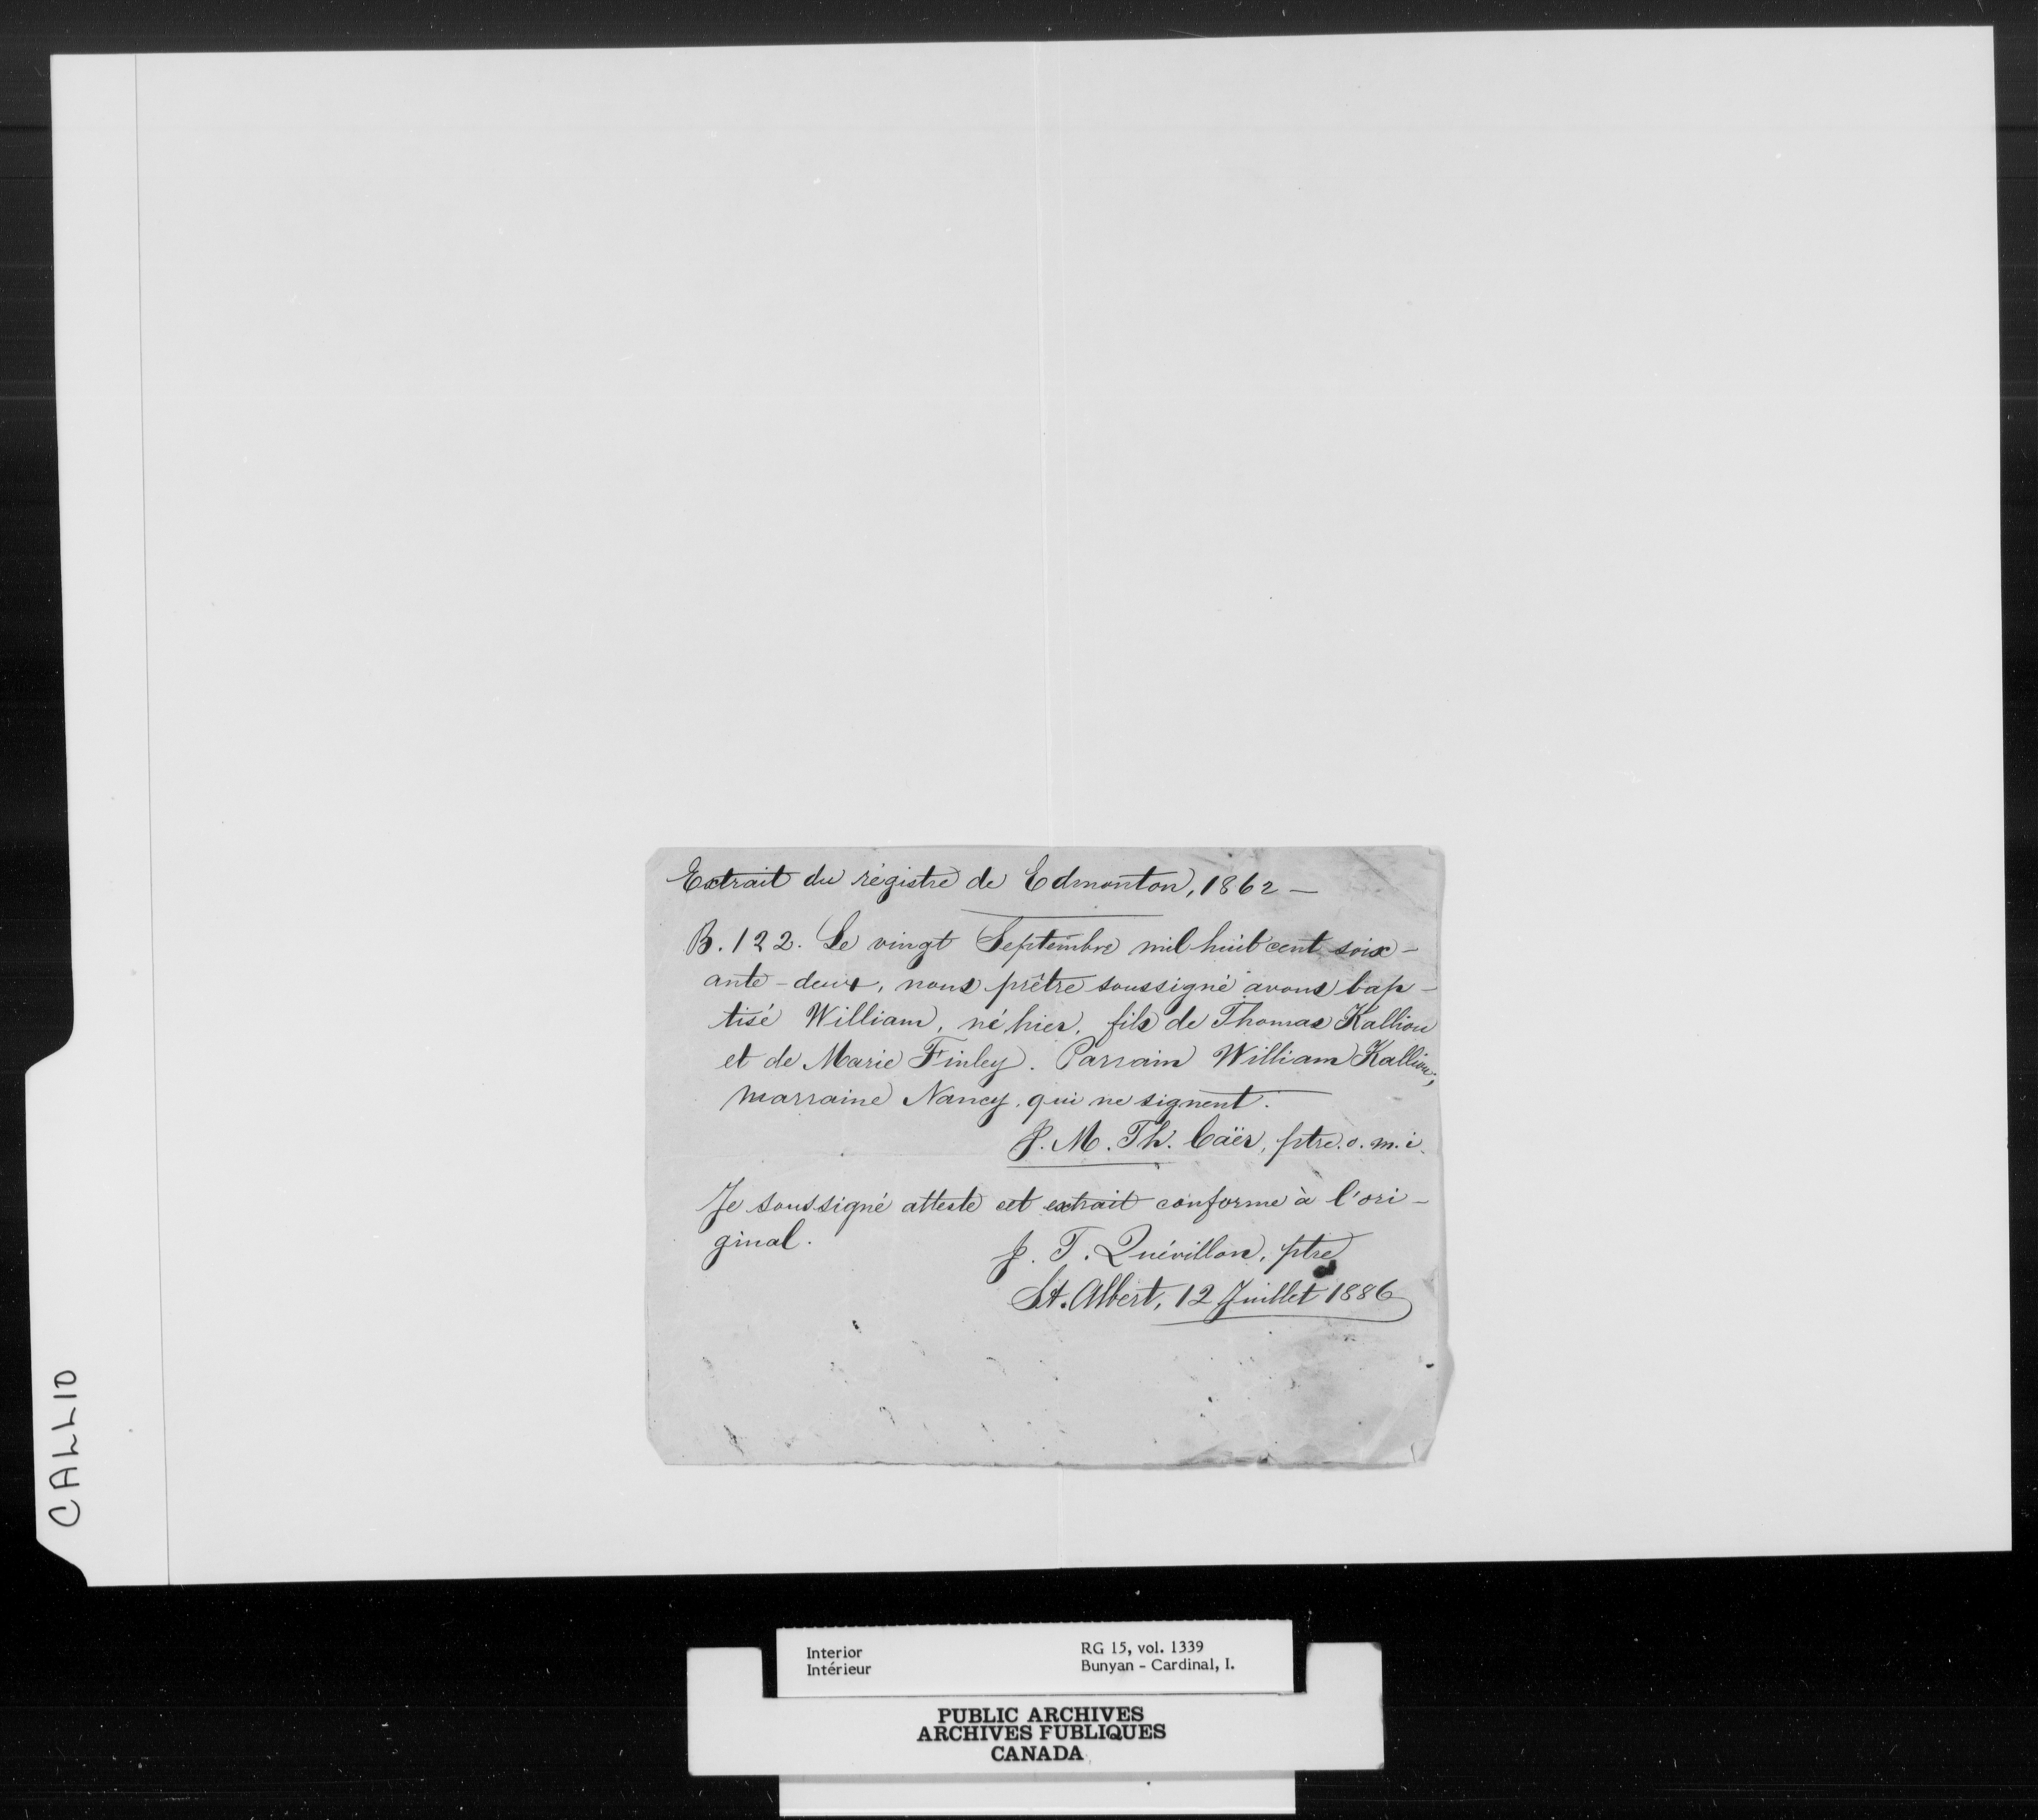 Extrait du régistre de Edmonton, 1862 —
B. 122. Le vingt Septembre mil huit cent soix-
ante-deux, nous prêtre soussigné avons bap-
tisé William, né hier, fils de Thomas Kalliou
et de Marie Finley. Parrain William Kalliou,
marraine Nancy qui ne signent.
J. M. Th. Caër, ptre. o. m. i.
Je soussigné atteste cet extrait conforme à l'ori-
ginal.
J. T. Quévillon, ptre
St. Albert, 12 Juillet 1886
CALLIO
Interior
Intérieur
RG 15, vol. 1339
Bunyan - Cardinal, I.
PUBLIC ARCHIVES
ARCHIVES PUBLIQUES
CANADA